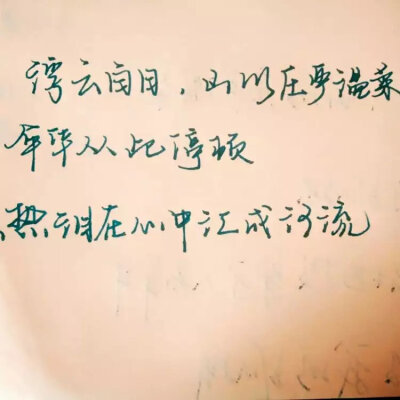 浮云白日，山川庄严温柔
年华从此停顿
热泪在心中汇成河流